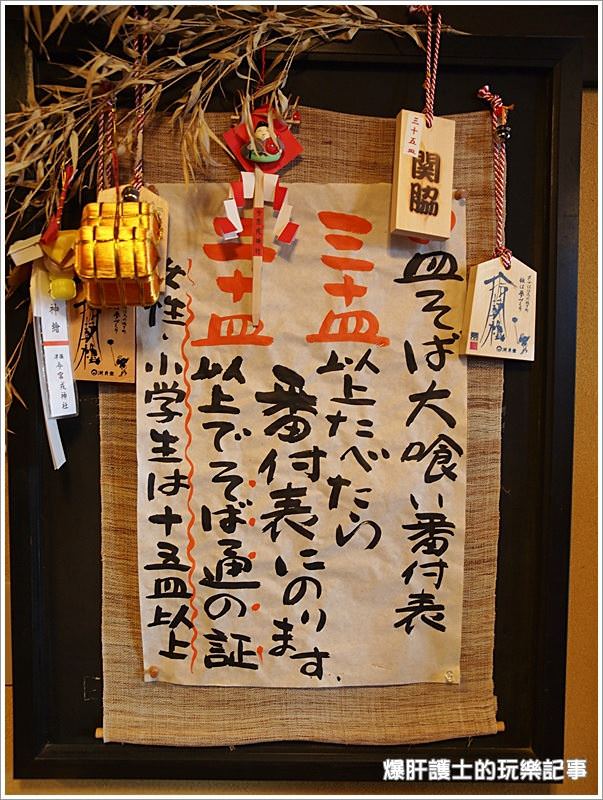 皿そば大喰い番付表
三十皿以上たべたら
番付表にのります。
二十皿以上でそば通の証
女性・小学生は十五皿以上
三十五皿
関脇
今宮戎神社
爆肝護士的玩樂記事